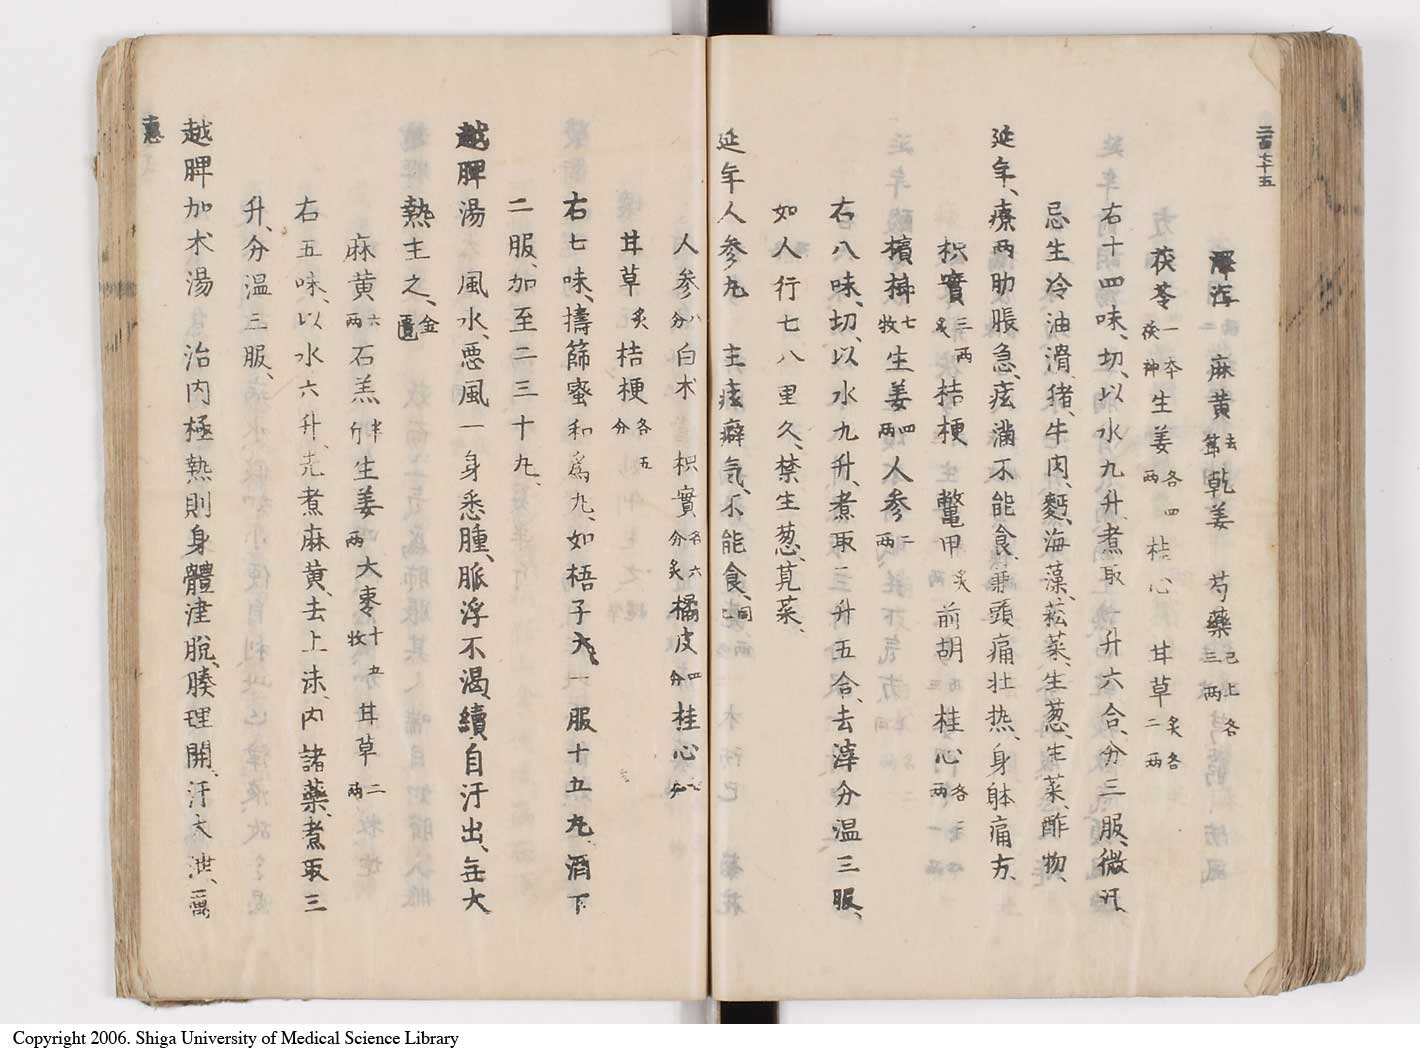 二百七十五
澤漆 麻黄去茸 乾姜 芍藥已上各三両
茯苓一本茯神 生姜各四両 桂心 甘草炙各二両
右十四味、切、以水九升、煮取 升六合、分三服、微汗、
忌生冷油滑猪、牛肉、麪、海藻、菘菜、生葱、生菜、酢物、
延年、療両肋脹急、痃満不能食、兼頭痛壮热、身體痛方、
枳實三両炙 桔梗 鼈甲炙 前胡三 桂心各両
檳榔七牧 生姜四両 人参二両
右八味、切、以水九升、煮取二升五合、去滓分温三服、
如人行七八里久、禁生葱、莧菜、
延年人参丸 主痃癖気、不能食、同上
人参八分 白术 枳實各六分炙 橘皮四分 桂心
甘草炙 桔梗各五分
右七味、擣篩蜜和為丸、如梧子大、一服十五丸、酒下
二服、加至二三十丸、
越脾湯 風水、悪風一身悉腫、脈浮不渴、續自汗出、無大
熱主之、金匱
麻黄六両 石羔半斤 生姜 両 大棗十五牧 甘草二両
右五味、以水六升、先煮麻黄、去上沫、内諸藥、煮取三
升、分温三服、
越脾加术湯 治肉極熱則身體津脱、腠理開、汗大泄、厲